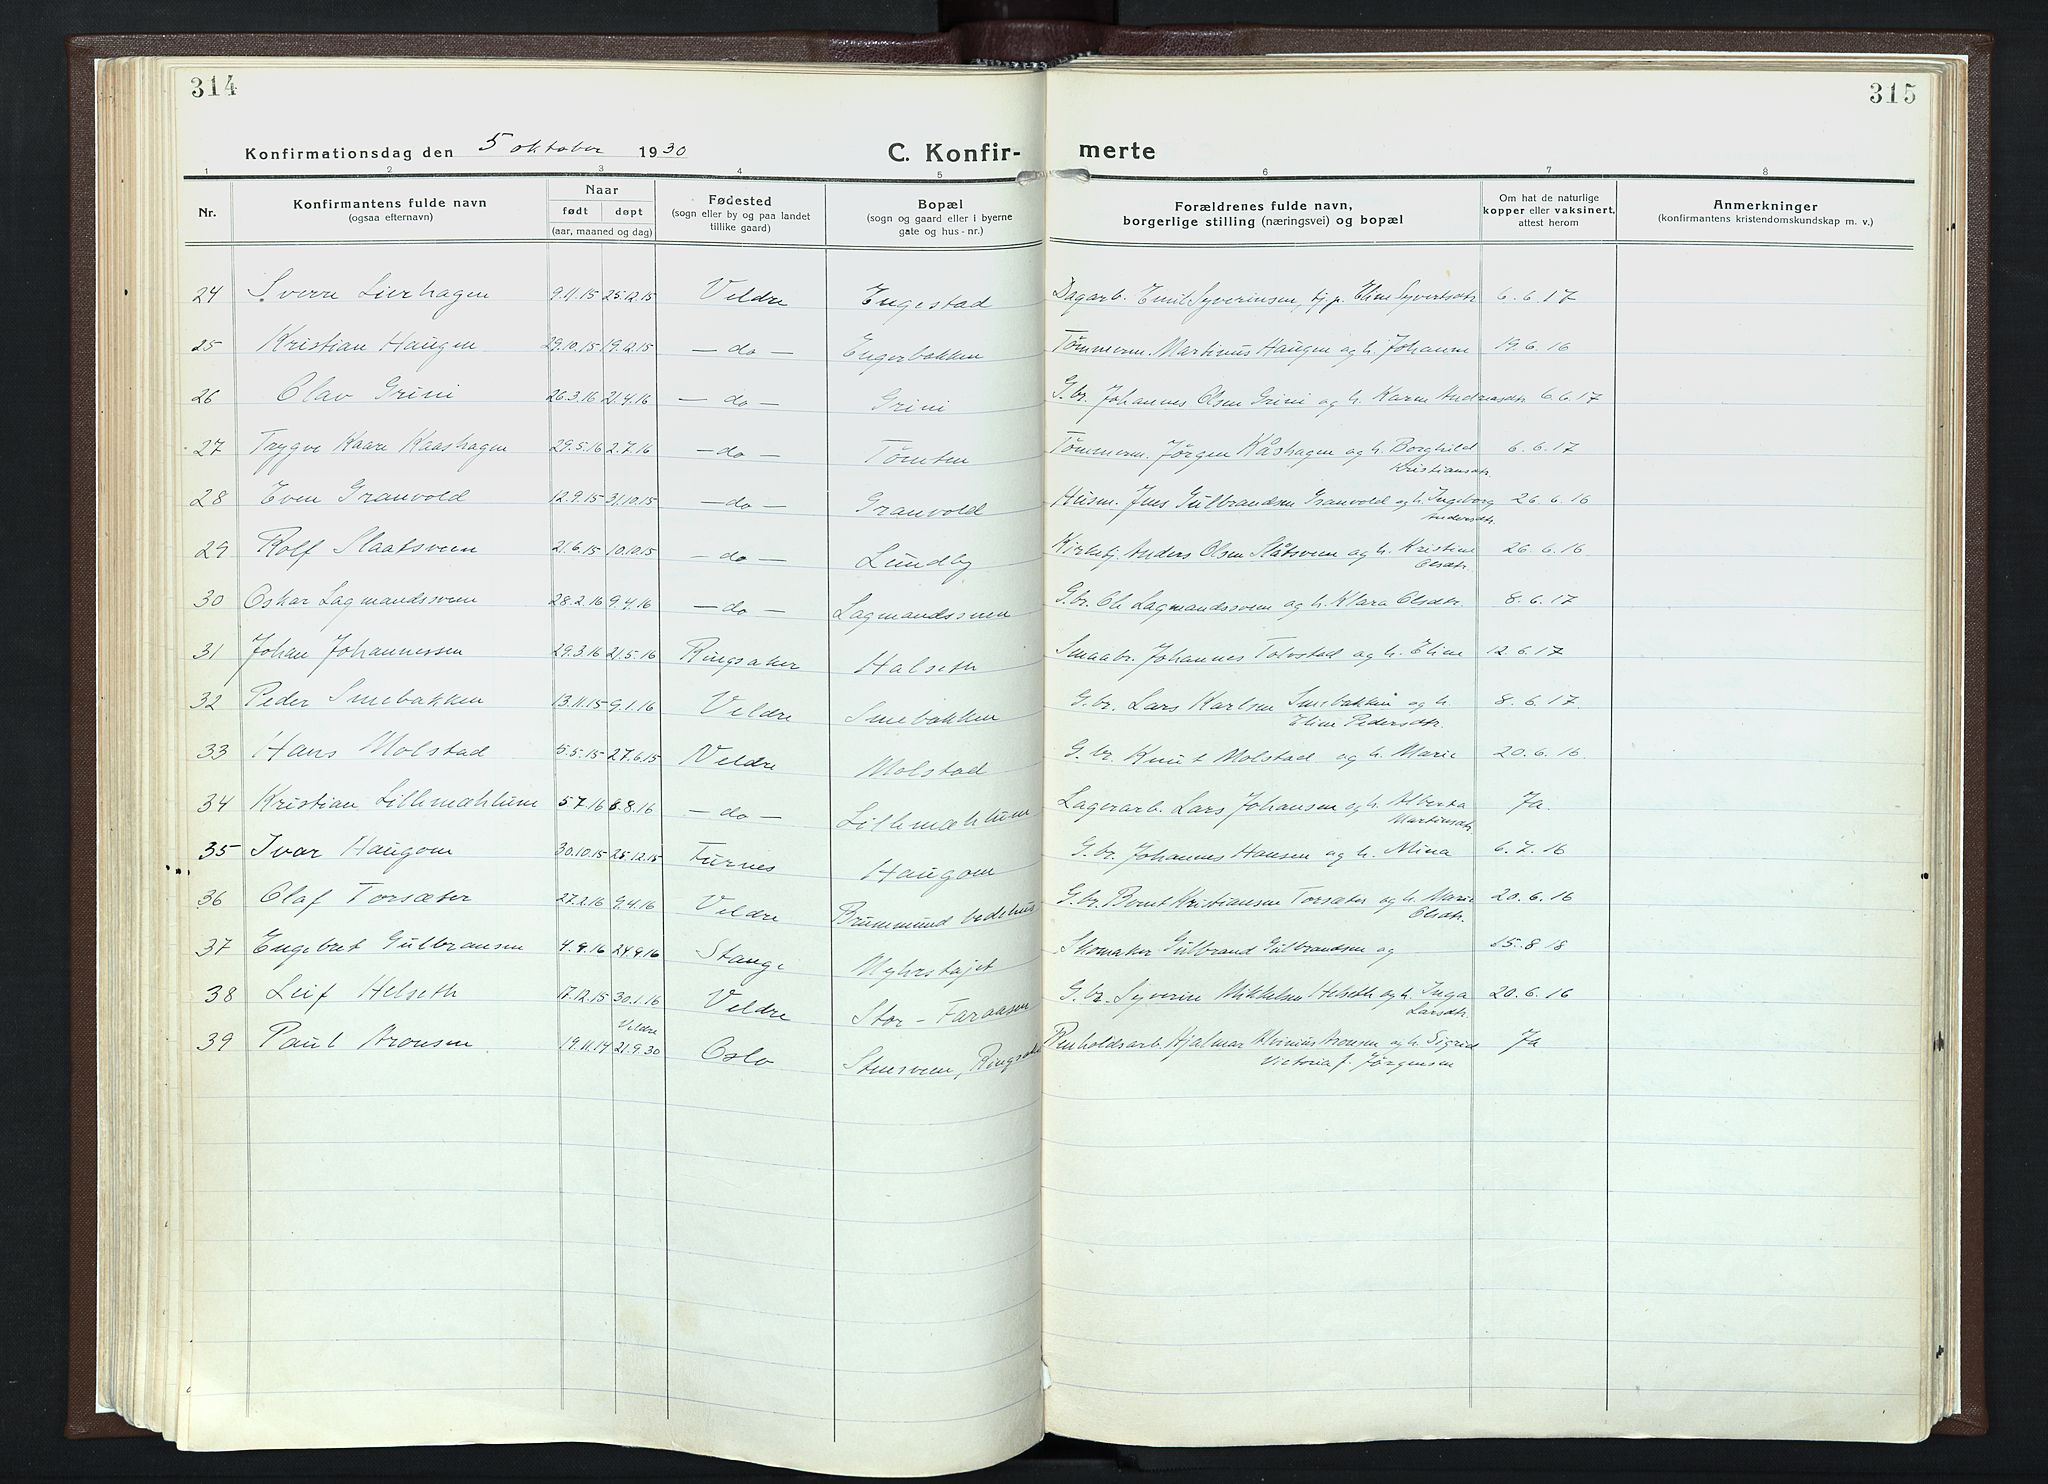 314
315
Konfirmationsdag den 5 oktober 1930
C. Konfir- merte
1 2 3 4 5 6 7 8
Nr.
Konfirmantens fulde navn
(ogsaa efternavn)
Naar
født døpt
(aar, maaned og dag)
Fødested
(sogn eller by og paa landet
tillike gaard)
Bopæl
(sogn og gaard eller i byerne
gate og hus-nr.)
Forældrenes fulde navn,
borgerlige stilling (næringsvei) og bopæl
Om hat de naturlige
kopper eller vaksinert,
attest herom
Anmerkninger
(konfirmantens kristendomskundskap m. v.)
24 Sverre Lierhagen 9.11.15 25.12.15 Veldre Engestad Dagarb. Emil Syverinsen, tj.p. Eline Syvertsdtr. 6.6.17
25 Kristian Haugen 29.10.15 19.12.15 — do — Engerbakken Tømmerm. Martinus Haugen og h. Johanne 19.6.16
26 Olav Grini 26.3.16 21.4.16 — do — Grini G.br. Johannes Olsen Grini og h. Karen Andreasdtr. 6.6.17
27 Trygve Kaare Kaashagen 29.5.16 2.7.16 — do — Tomten Tømmerm. Jørgen Kåshagen og h. Borghild
Kristiansdtr. 6.6.17
28 Even Granvold 12.9.15 31.10.15 — do — Granvold Husm. Jens Gulbrandsen Granvold og h. Ingeborg
Andersdtr. 26.6.16
29 Rolf Slaatsveen 21.6.15 10.10.15 — do — Lundby Kirketj. Anders Olsen Slåtsveen og h. Kristine
Olsdtr. 26.6.16
30 Oskar Lagmandssveen 28.2.16 9.4.16 — do — Lagmandssveen G.br. Ole Lagmandssveen og h. Klara Olsdtr. 8.6.17
31 Johan Johannessen 29.3.16 21.5.16 Ringsaker Halseth Smaabr. Johannes Tolvstad og h. Eline 12.6.17
32 Peder Smebakken 13.11.15 9.1.16 Veldre Smebakken G.br. Lars Karlsen Smebakken og h.
Eline Pedersdtr. 8.6.17
33 Hans Molstad 5.5.15 27.6.15 Veldre Molstad G.br. Knut Molstad og h. Marie 20.6.16
34 Kristian Lillemæhlum 5.7.16 6.8.16 — do — Lillemæhlum Lagerarb. Lars Johansen og h. Alberta
Martinsdtr. Ja.
35 Ivar Haugom 30.10.15 25.12.15 Furnes Haugom G.br. Johannes Hansen og h. Mina 6.7.16
36 Olaf Torsæter 27.2.16 9.4.16 Veldre Brummund bedehus G.br. Bernt Kristiansen Torsæter og h. Marie
Olsdtr. 20.6.16
37 Engebret Gulbransen 4.9.16 24.9.16 Stange Myhrstøjet Skomaker Gulbrand Gulbrandsen og 15.8 18
38 Leif Helseth 17.12.15 30.1.16 Veldre Stor-Faraasen G.br. Syverin Mikkelsen Helseth og h. Inga
Larsdtr. 20.6.16
39 Paul Aronsen 19.11.14 Veldre
21.9.30 Oslo Stensveen, Ringsaker Renholdsarb. Hjalmar Alvinius Aronsen og h. Sigrid
Victoria f. Jørgensen Ja